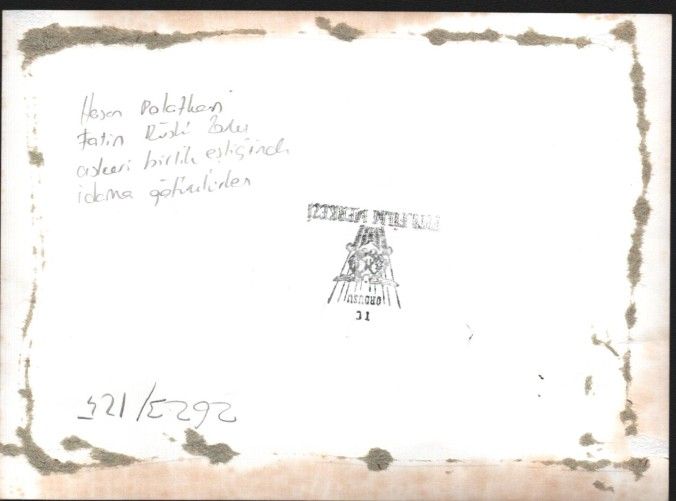 Hasan Polatkan
Fatin Rüştü Zorlu
askeri birlik eşliğinde
idama götürülürken
FİLM MERKEZİ
ORDUSU
TC